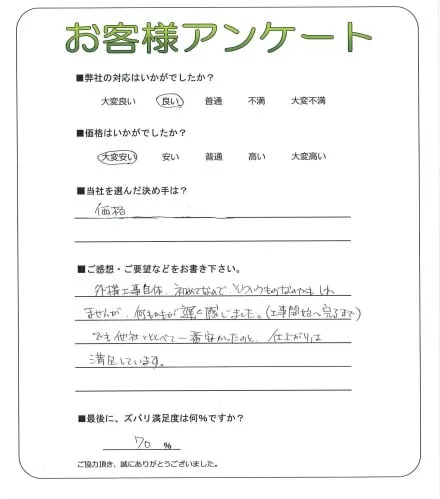 お客様アンケート
■弊社の対応はいかがでしたか？
大変良い 良い 普通 不満 大変不満
■価格はいかがでしたか？
大変安い 安い 普通 高い 大変高い
■当社を選んだ決め手は？
価格
■ご感想・ご要望などをお書き下さい。
外構工事自体、初めてなんで、そういうものなのかもしれ
ませんが、何もかもが遅く感じました。(工事開始〜完了まで)
でも他社とくらべて一番安かったのと、仕上がりは
満足しています。
■最後に、ズバリ満足度は何%ですか？
70 %
ご協力頂き、誠にありがとうございました。